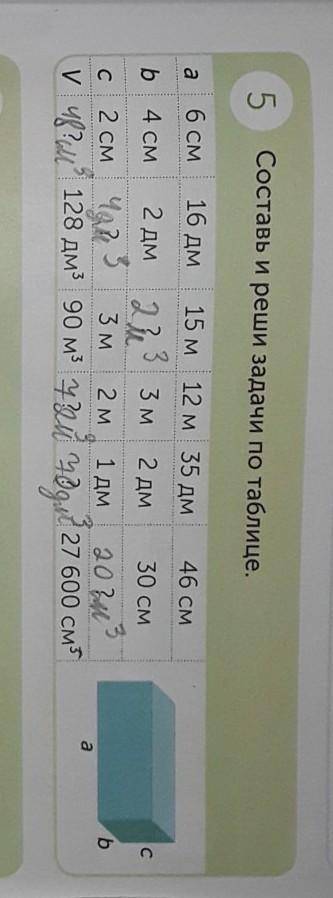 5 Составь и реши задачи по таблице.
a 6 см 16 дм 15 м 12 м 35 дм 46 см
b 4 см 2 дм 2 м ? 3 3 м 2 дм 30 см
c 2 см 4 дм ? 3 3 м 2 м 1 дм 20 ? м 3
V 48 ? см³ 128 дм³ 90 м³ 72 м³ 70 дм³ 27 600 см³
c
b
a